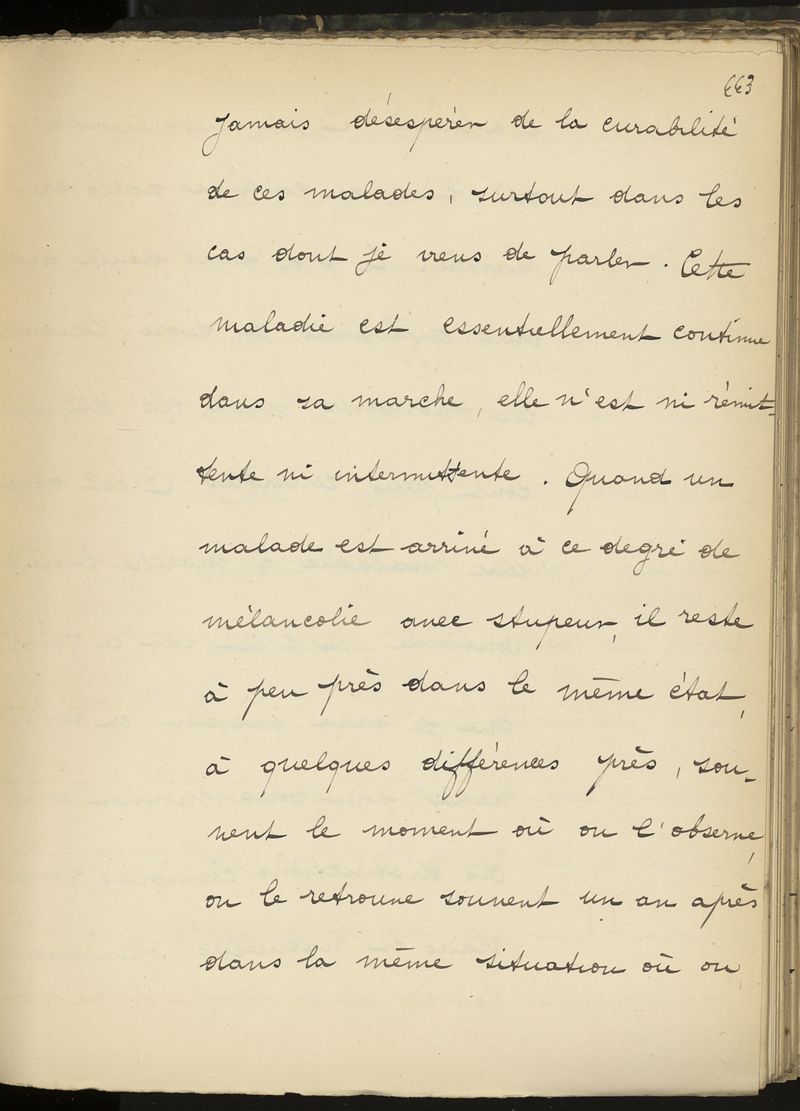 663
jamais désespérer de la curabilité
de ces malades, surtout dans les
cas dont je viens de parler. Cette
maladie est essentiellement continue
dans sa marche, elle n'est ni rémit-
tente ni intermittente. Quand un
malade est arrivé à ce degré de
mélancolie avec stupeur, il reste
à peu près dans le même état,
à quelques différences près, sou-
vent le moment où on l'observe,
on le retrouve souvent un an après
dans la même situation où on